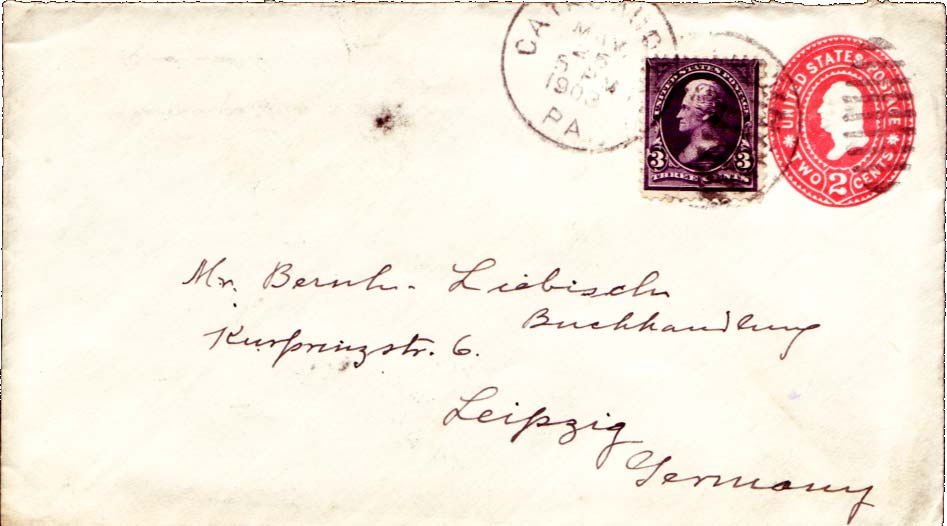 MAY
25
1903
PA.
UNITED STATES POSTAGE
3 3
THREE CENTS
UNITED STATES POSTAGE
TWO 2 CENTS
Mr. Bernh. Liebisch
Buchhandlung
Kurprinzstr. 6.
Leipzig
Germany